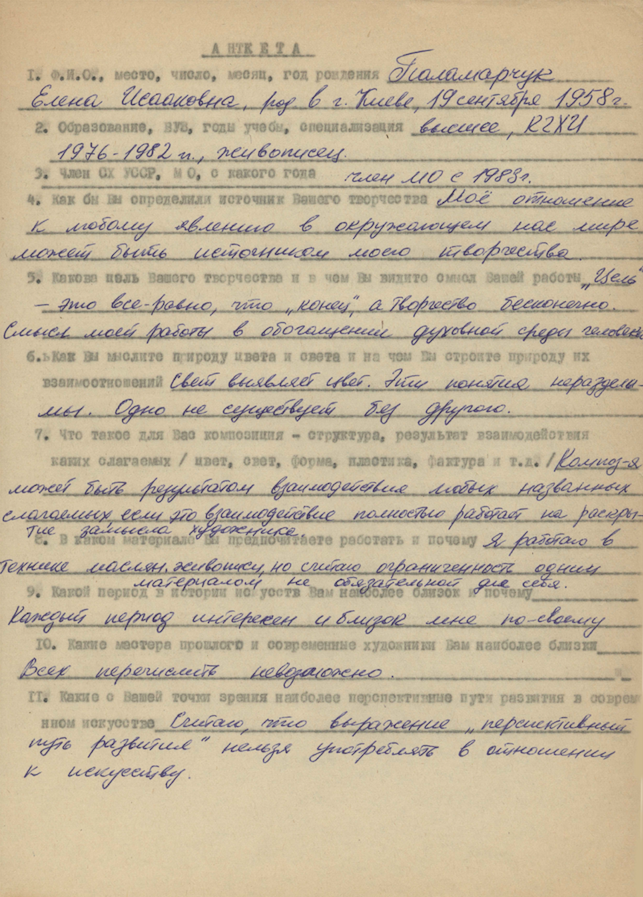 АНКЕТА
1. Ф.И.О., место, число, месяц, год рождения Паламарчук
Елена Исааковна, род в г. Киеве, 19 сентября 1958 г.
2. Образование, ВУЗ, годы учебы, специализация высшее, КГХИ
1976-1982 гг., живописец.
3. Член СХ УССР, МО, с какого года член МО с 1983г.
4. Как бы Вы определили источник Вашего творчества Моё отношение
к любому явлению в окружающем нас мире
может быть источником моего творчества.
5. Какова цель Вашего творчества и в чем Вы видите смысл Вашей работы „Цель"
– это все-равно, что „конец", а творчество бесконечно.
Смысл моей работы в обогащении духовной среды человека
6. Как Вы мыслите природу цвета и света и на чем Вы строите природу их
взаимоотношений Свет выявляет цвет. Эти понятия нераздели-
мы. Одно не существует без другого.
7. Что такое для Вас композиция – структура, результат взаимодействия
каких слагаемых / цвет, свет, форма, пластика, фактура и т.д. / Композ-я
может быть результатом взаимодействия любых названных
слагаемых если это взаимодействие полностью работает на раскры-
тие замысла художника.
8. В каком материале Вы предпочитаете работать и почему Я работаю в
технике маслян. живописи, но считаю ограниченность одним
материалом не обязательной для себя.
9. Какой период в истории искусств Вам наиболее близок и почему
Каждый период интересен и близок мне по-своему
10. Какие мастера прошлого и современные художники Вам наиболее близки
Всех перечислить невозможно.
11. Какие с Вашей точки зрения наиболее перспективные пути развития в соврем
нном искусстве Считаю, что выражение „перспективный
путь развития" нельзя употреблять в отношении
к искусству.